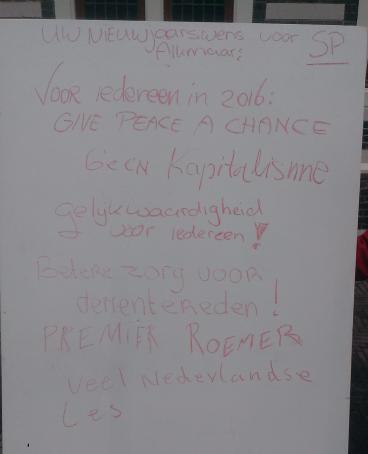 UW NIEUWjaarswens voor
Alkmaar: SP
Voor iedereen in 2016:
GIVE PEACE A CHANCE
GEEN Kapitalisme
gelijkwaardigheid
voor iedereen!
Betere zorg voor
dementereden!
PREMIËR ROEMER
Veel Nederlandse
Les